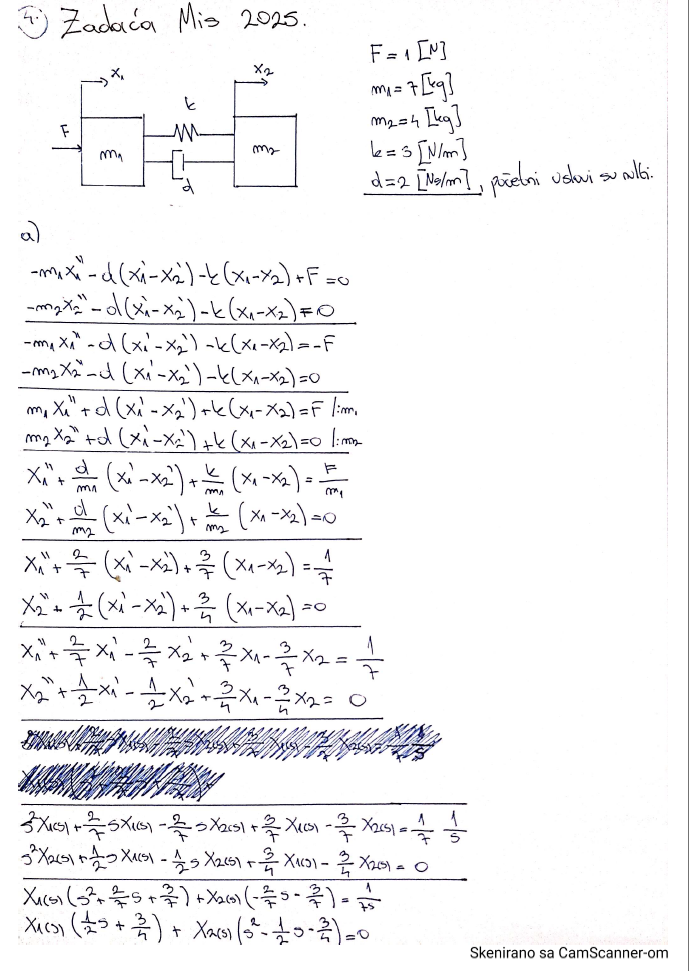 4. Zadaća Mis 2025.
x₁
x₂
k
F
m₁
m₂
d
F = 1 [N]
m₁ = 7 [kg]
m₂ = 4 [kg]
k = 3 [N/m]
d = 2 [Ns/m], početni uslovi su nulti.
a)
-m₁x₁'' - d(x₁' - x₂') - k(x₁ - x₂) + F = 0
-m₂x₂'' - d(x₁' - x₂') - k(x₁ - x₂) = 0
-m₁x₁'' - d(x₁' - x₂') - k(x₁ - x₂) = -F
-m₂x₂'' - d(x₁' - x₂') - k(x₁ - x₂) = 0
m₁x₁'' + d(x₁' - x₂') + k(x₁ - x₂) = F /:m₁
m₂x₂'' + d(x₁' - x₂') + k(x₁ - x₂) = 0 /:m₂
x₁'' + d/m₁ (x₁' - x₂') + k/m₁ (x₁ - x₂) = F/m₁
x₂'' + d/m₂ (x₁' - x₂') + k/m₂ (x₁ - x₂) = 0
x₁'' + 2/7 (x₁' - x₂') + 3/7 (x₁ - x₂) = 1/7
x₂'' + 1/2 (x₁' - x₂') + 3/4 (x₁ - x₂) = 0
x₁'' + 2/7 x₁' - 2/7 x₂' + 3/7 x₁ - 3/7 x₂ = 1/7
x₂'' + 1/2 x₁' - 1/2 x₂' + 3/4 x₁ - 3/4 x₂ = 0
s²X₁(s) + 2/7 s X₁(s) - 2/7 s X₂(s) + 3/7 X₁(s) - 3/7 X₂(s) = 1/7 1/s
s²X₂(s) + 1/2 s X₁(s) - 1/2 s X₂(s) + 3/4 X₁(s) - 3/4 X₂(s) = 0
X₁(s) (s² + 2/7 s + 3/7) + X₂(s) (-2/7 s - 3/7) = 1/7s
X₁(s) (1/2 s + 3/4) + X₂(s) (s² - 1/2 s - 3/4) = 0
Skenirano sa CamScanner-om